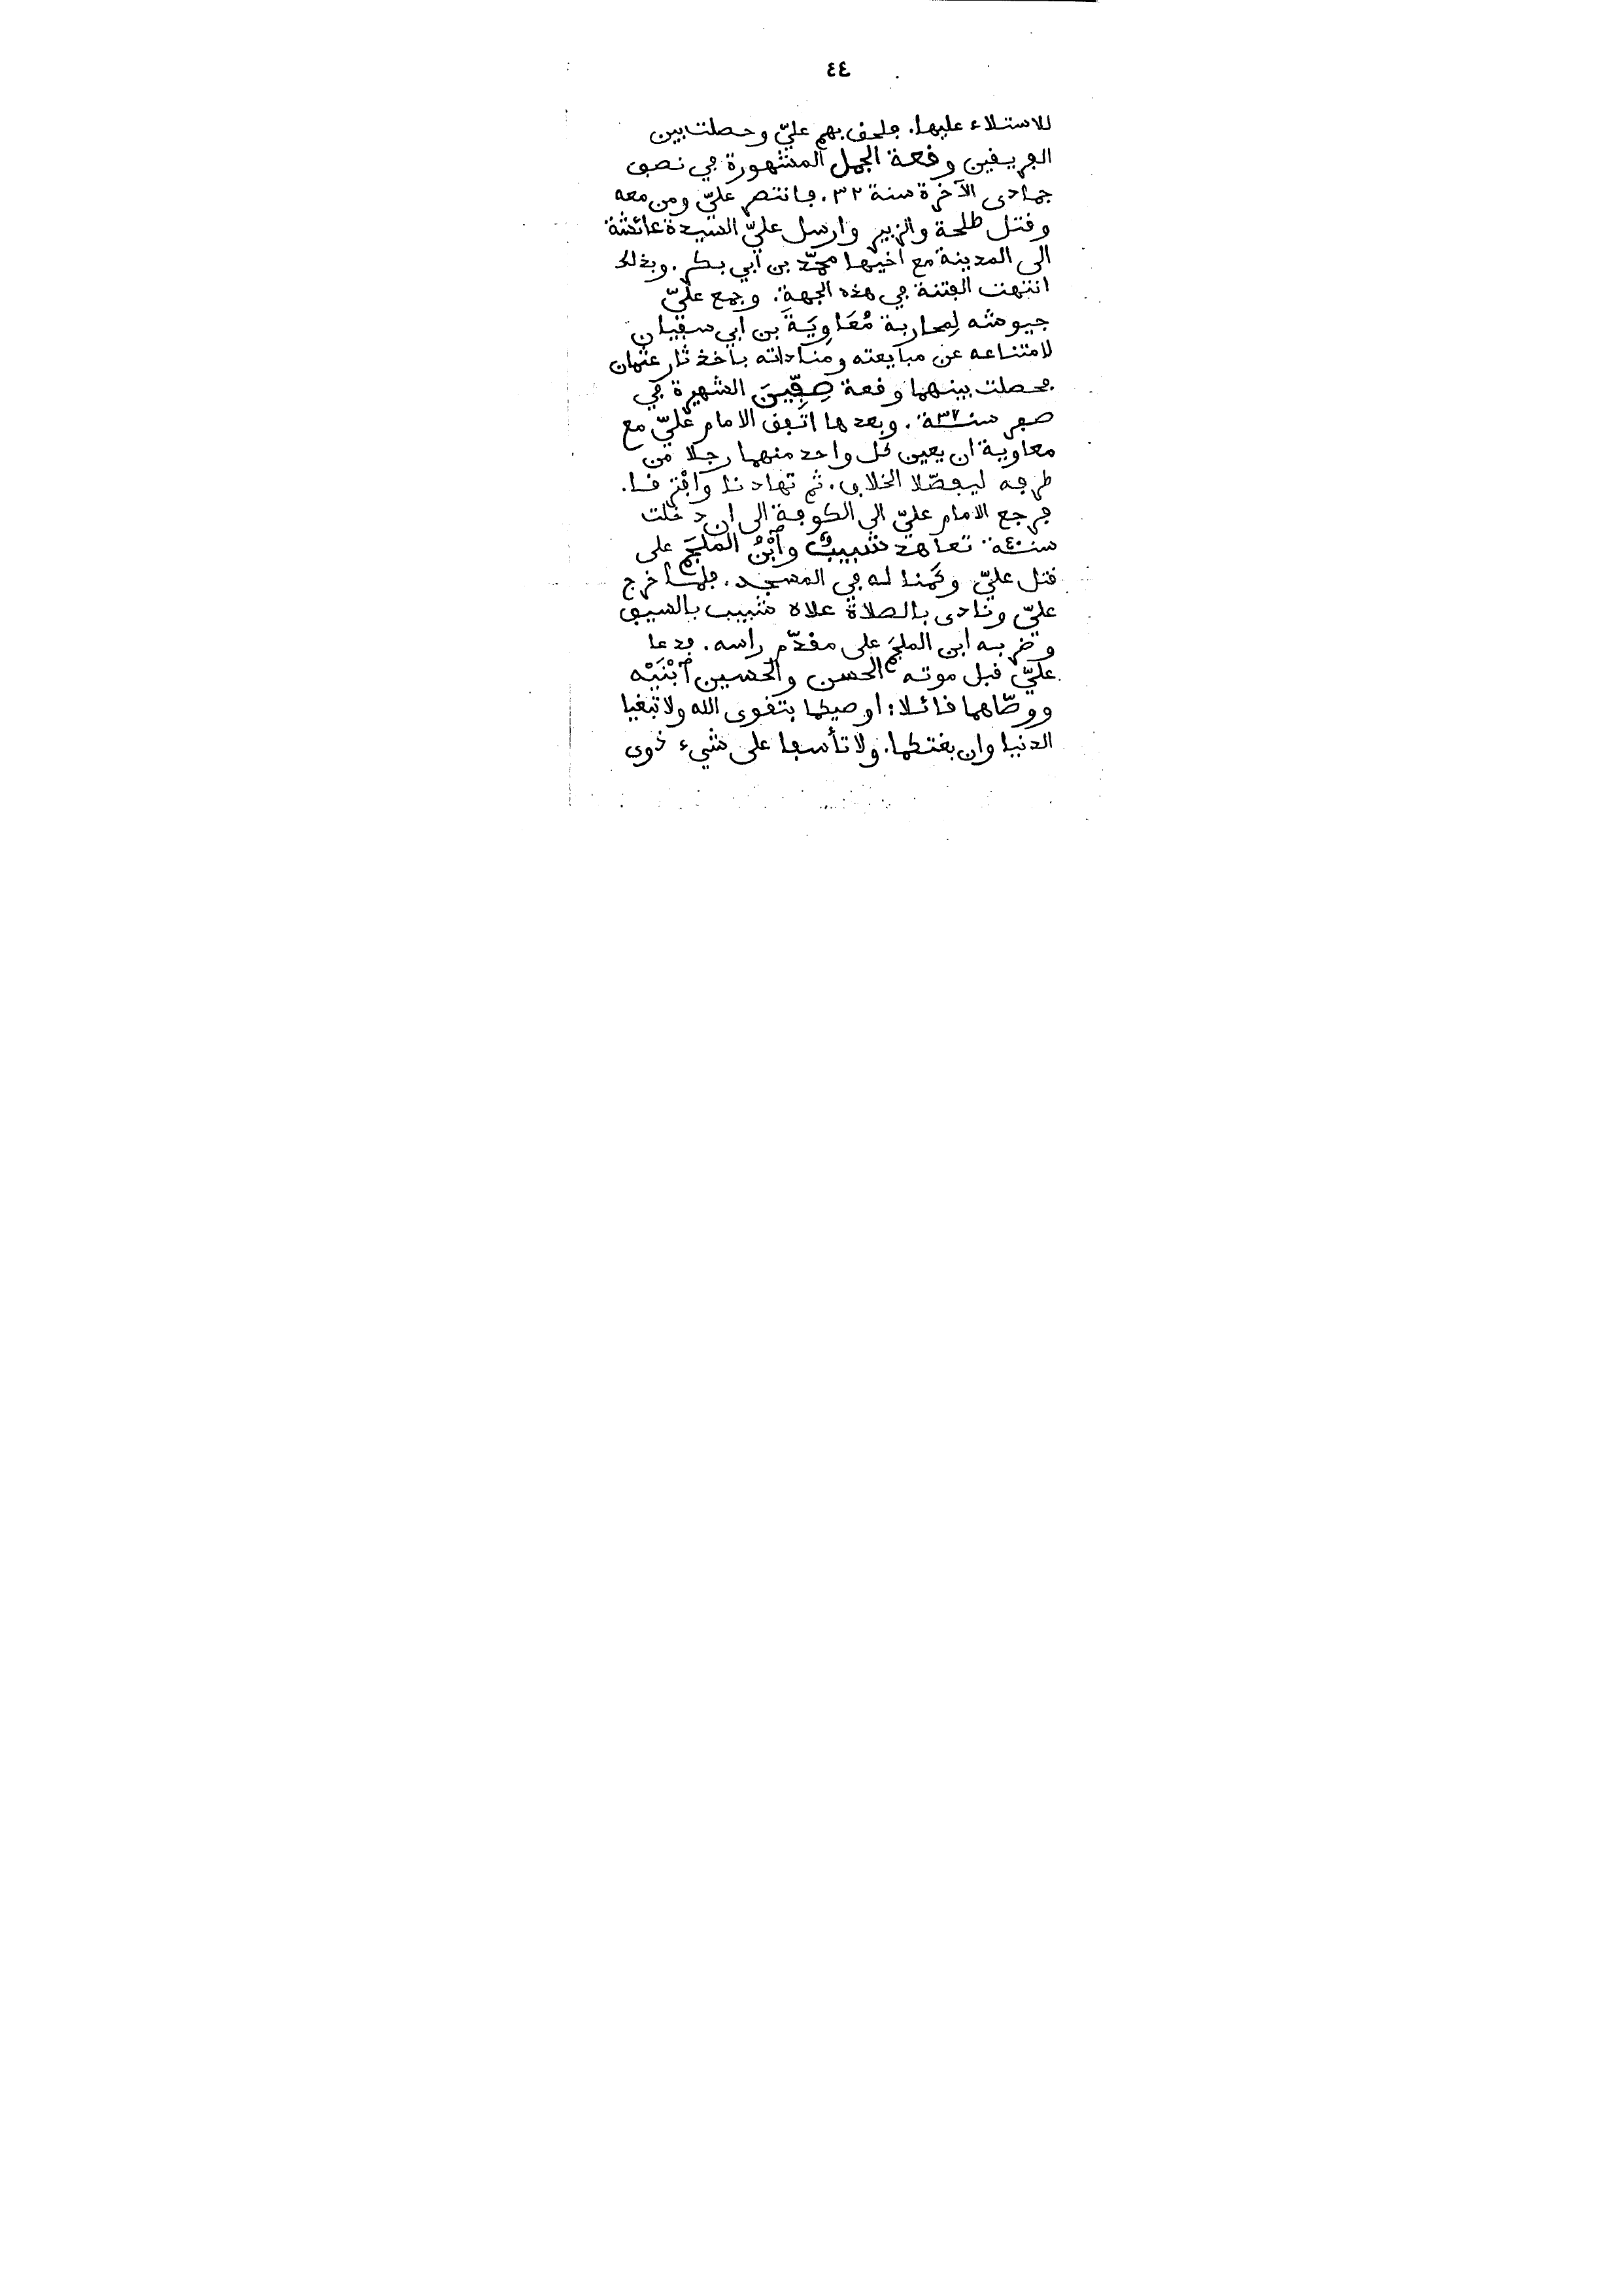 ٤٤
للاستلاء عليها. فلحق بهم عليّ وحصلت بين
الفريقين وقعة الجمل المشهورة في نصف
جمادى الآخرة سنة ٣٢. فانتصر عليّ ومن معه
وقتل طلحة والزبير وارسل عليّ السيدة عائشة
الى المدينة مع اخيها محمّد بن أبي بكر. وبذلك
انتهت الفتنة في هذه الجهة. وجمع عليّ
جيوشه لِمحاربة مُعَاوِيَةَ بن ابي سفيان
لامتناعه عن مبايعته ومناداته بأخذ ثار عثمان
فحصلت بينهما وقعة صِفِّينَ الشهيرة في
صفر سنة ٣٧. وبعدها اتفق الامام عليّ مع
معاوية ان يعين كل واحد منهما رجلا من
طرفه ليفصّلا الخلاف. ثم تهادنا وافْترقا.
فرجع الامام عليّ الى الكوفة الى ان دخلت
سنة ٤٠ تعاهد شبيبٌ وٱبْنُ الملجَم على
قتل عليّ وكمنا له في المسجد. فلما خرج
عليّ ونادى بالصلاة علاه شبيب بالسيف
وضربه ابن الملجَم على مقدّم راسه. فدعا
عليّ قبل موته الحسن والحسين ٱبْنَيْه
ووصّاهما قائلا: اوصيكما بتقوى الله ولا تبغيا
الدنيا وان بغتكما. ولا تأسفا على شيء ذوى